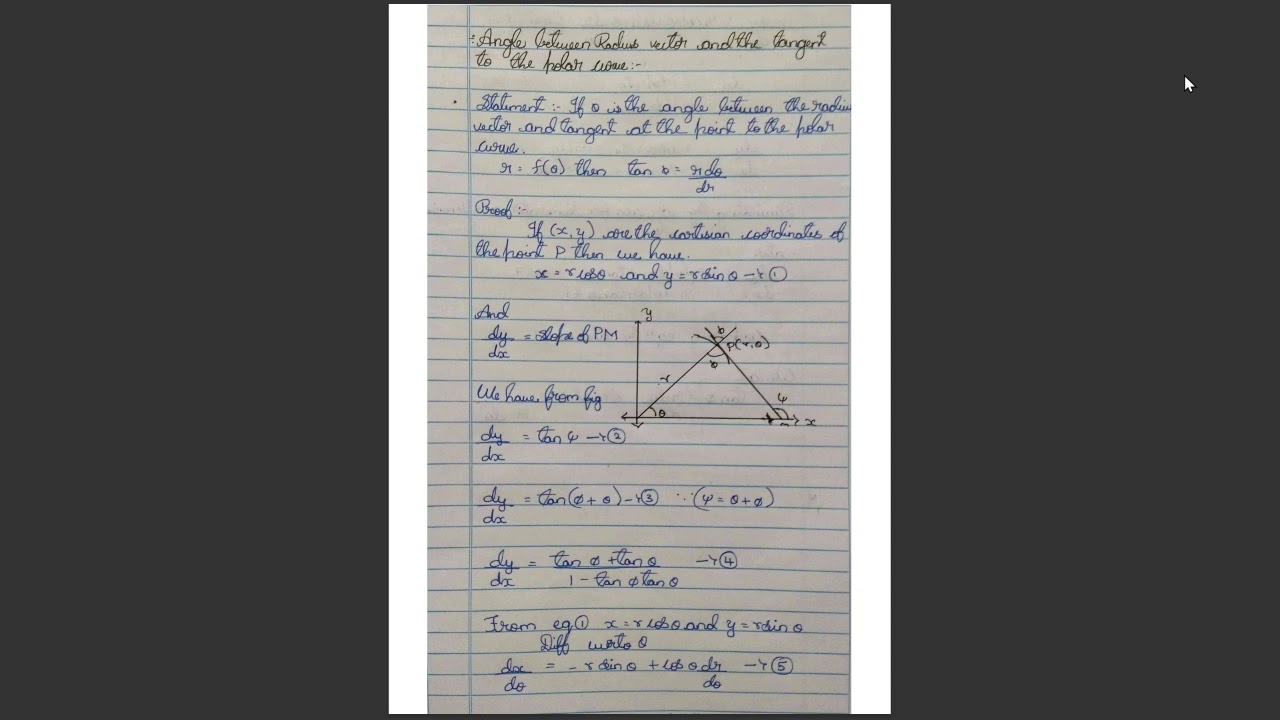 :- Angle between Radius vector and the tangent
to the polar curve:-
Statement :- If θ is the angle between the radius
vector and tangent at the point to the polar
curve.
r = f(θ) then tan ϕ = rdθ/dr
Proof :-
If (x, y) are the cartisian coordinates of
the point P then we have.
x = r cosθ and y = r sin θ → ①
And
dy/dx = slope of PM
y
ϕ
P(r, θ)
ϕ
r
We have from fig
ψ
θ
x
dy/dx = tan ψ → ②
dy/dx = tan(ϕ + θ) → ③ ∵ (ψ = θ + ϕ)
dy/dx = tan ϕ + tan θ / 1 - tan ϕ tan θ → ④
From eq ① x = r cosθ and y = r sin θ
Diff w.r.to θ
dx/dθ = - r sin θ + cos θ dr/dθ → ⑤